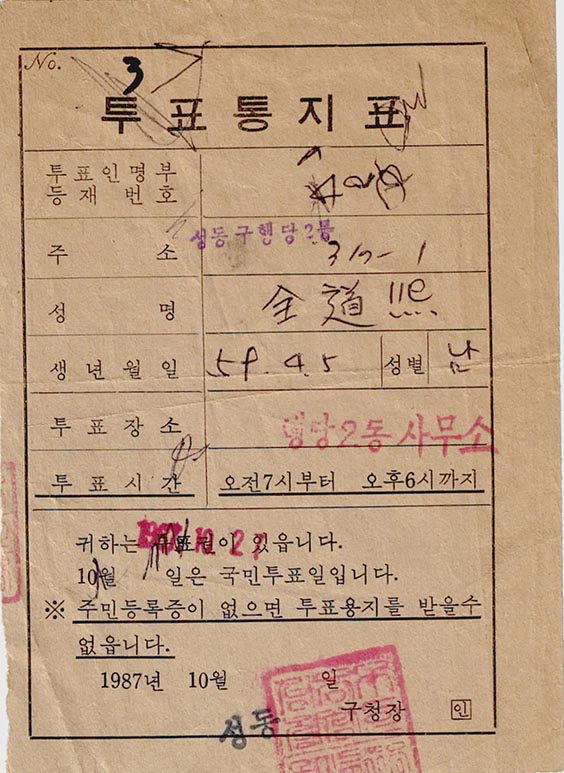 No. 3
투표통지표
투표인명부
등재번호
성동구행당2동
주 소 317-1
성 명 全道
생년월일 59.4.5 성별 남
투표장소 행당2동사무소
투표시간 오전7시부터 오후6시까지
귀하는 투표권이 있읍니다.
1987.10.27
10월 일은 국민투표일입니다.
※ 주민등록증이 없으면 투표용지를 받을수
없읍니다.
1987년 10월 일
성동 구청장 인